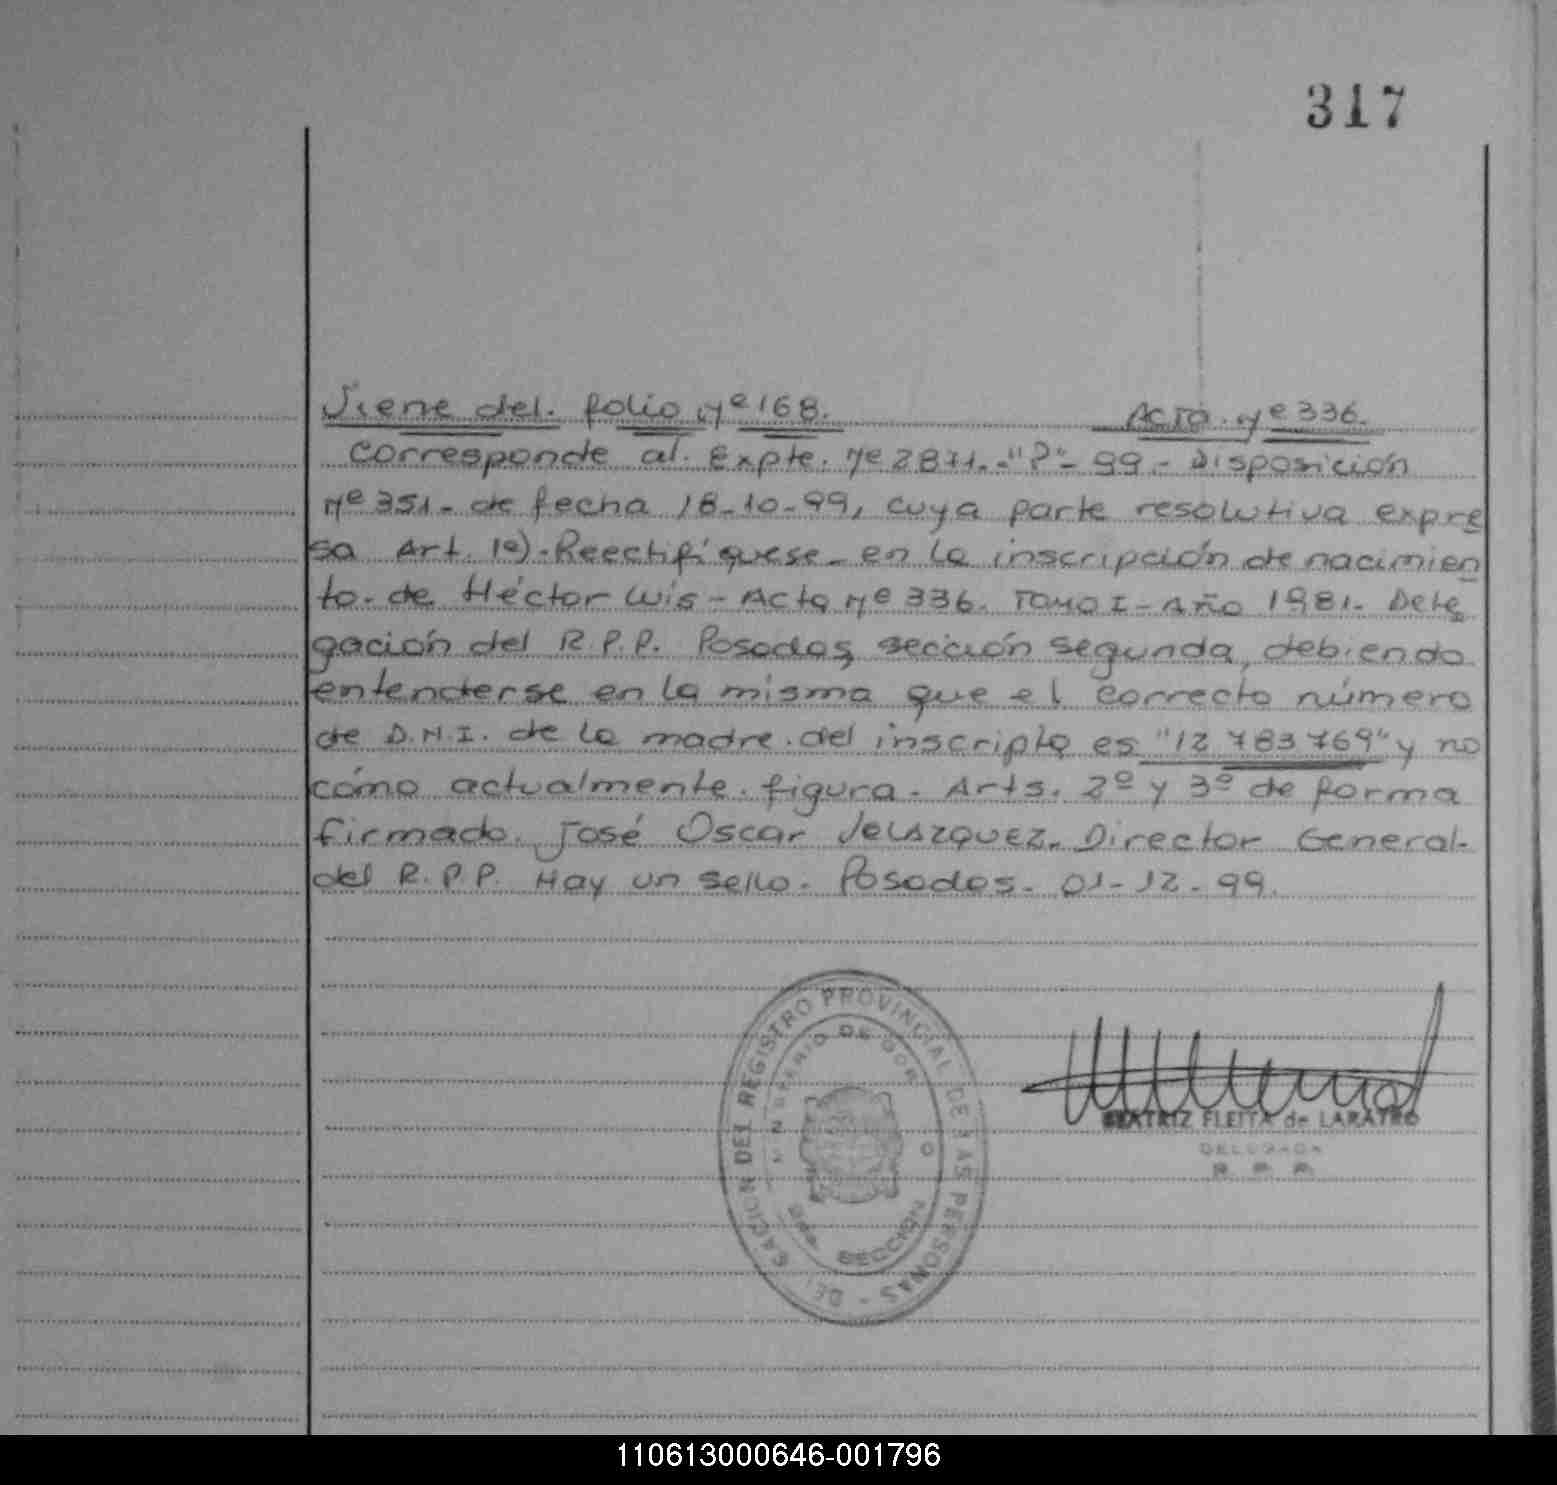 317
Viene del. folio Nº 168. Acta. Nº 336.
Corresponde al. Expte. Nº 2871.-"P"- 99.- Disposición
Nº 351.- de fecha 18-10-99, cuya parte resolutiva expre
sa Art. 1º).-Reectifíquese- en la inscripción de nacimien
to. de Héctor Luis - Acta Nº 336. Tomo I - Año 1981. Dele
gación del R.P.P. Posadas, sección segunda, debiendo
entenderse en la misma que el correcto número
de D.N.I. de la madre. del inscripto es "12 783 769" y no
cómo actualmente. figura. Arts. 2º y 3º de forma
firmado. José Oscar Velázquez. Director General.
del R.P.P. Hay un sello. Posadas. 01-12-99.
GACION DEL REGISTRO PROVINCIAL DE LAS PERSONAS - DEL
DE GOB
SECCION
BEATRIZ FLEITA de LARATRO
DELEGADA
R. P. P.
110613000646-001796